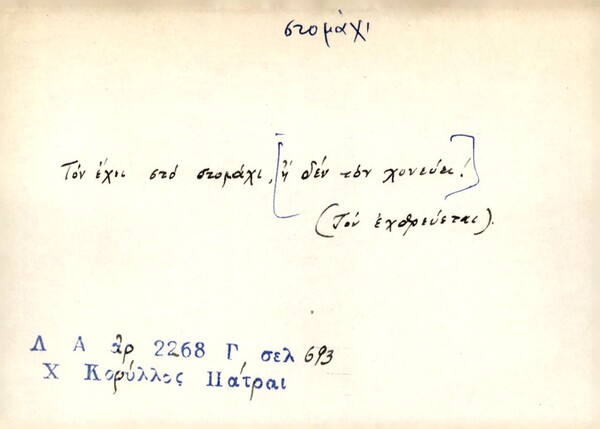 στομάχι
Τόν ἔχει στό στομάχι, [ἤ δέν τόν χονεύει!]
(Τόν ἐχθρεύεται).
Λ Α ἀρ 2268 Γ, σελ 693
Χ Κορύλλος Πάτραι